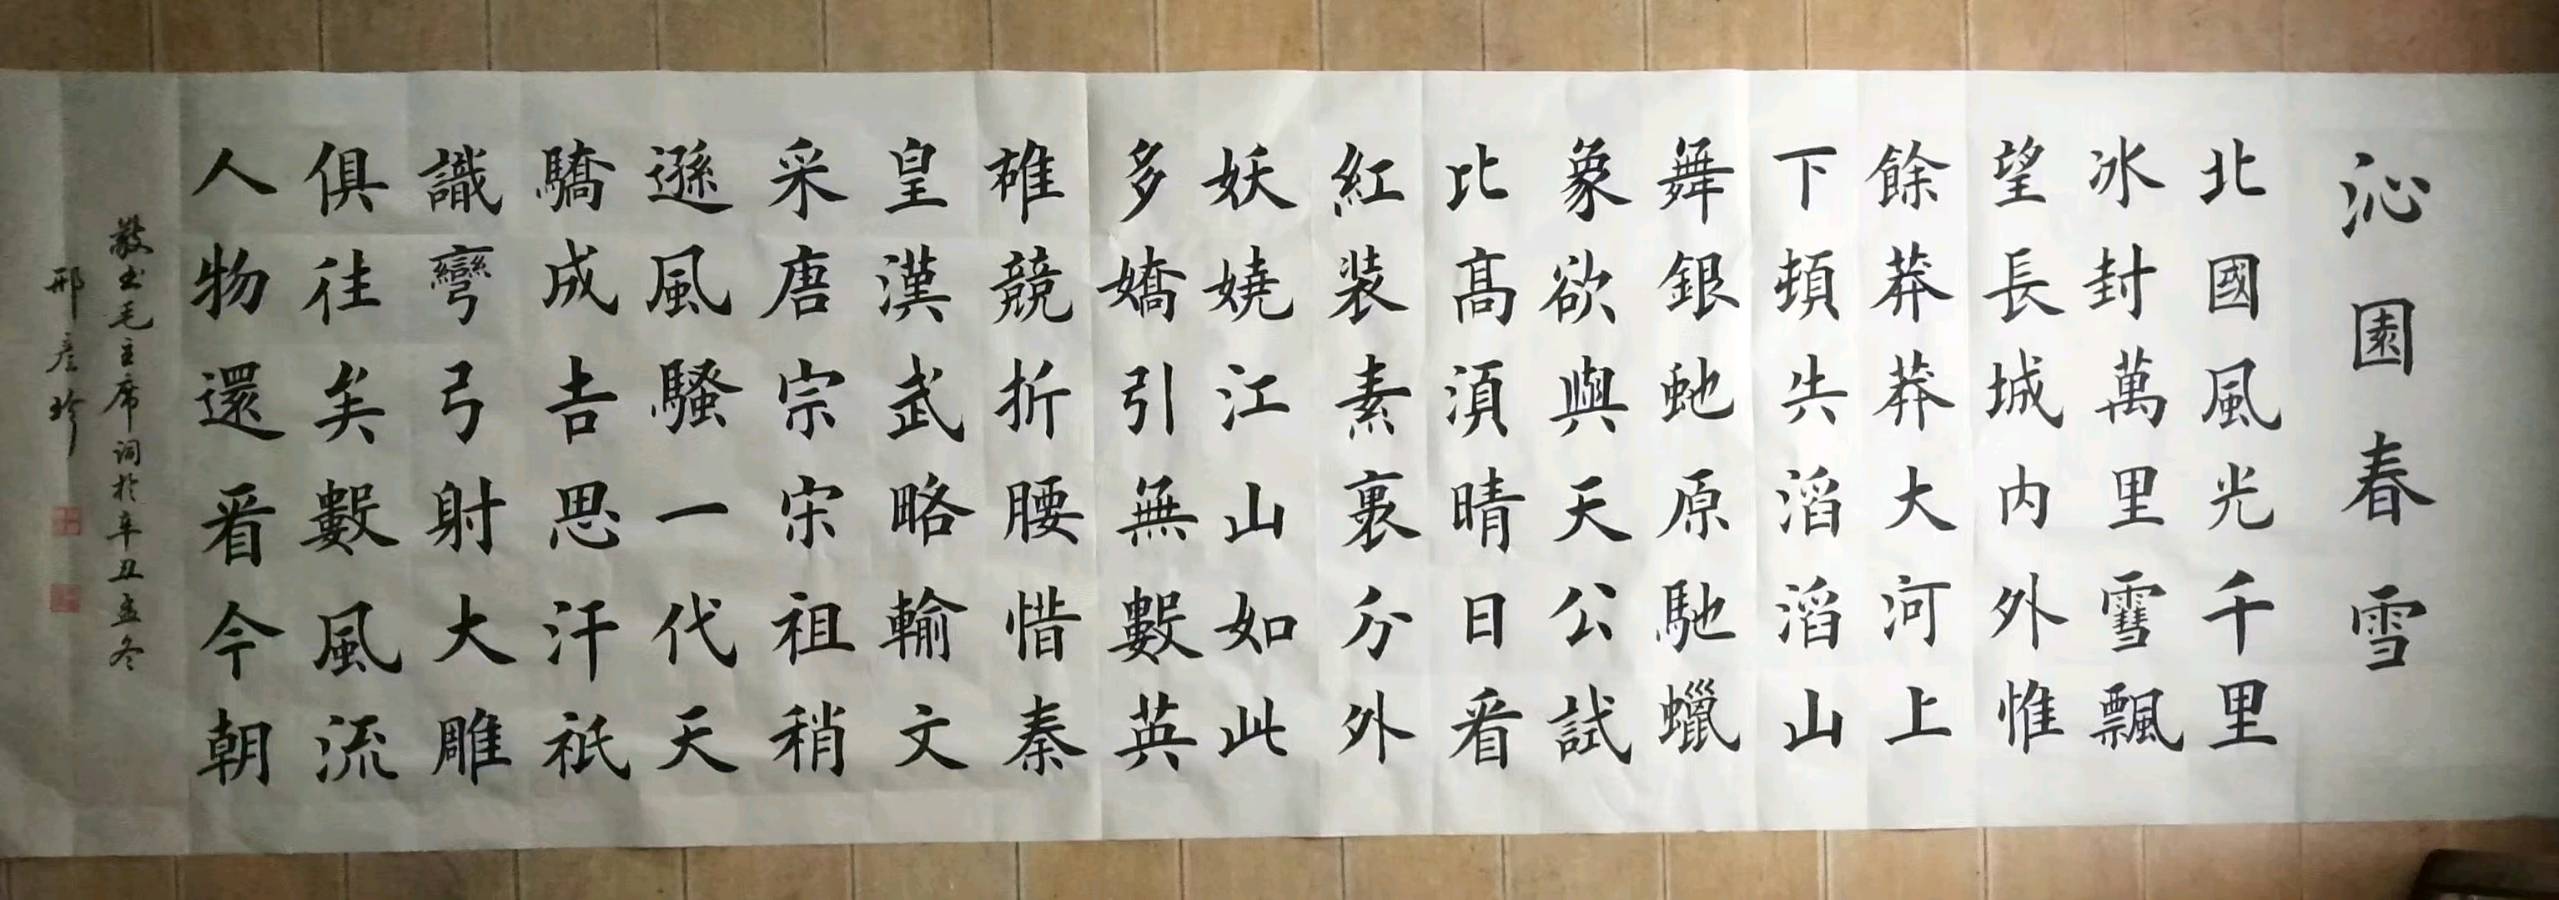 沁園春雪
北國風光千里
冰封萬里雪飄
望長城内外惟
餘莽莽大河上
下頓失滔滔山
舞銀虵原馳蠟
象欲與天公試
比髙須晴日看
紅装素裹分外
妖嬈江山如此
多嬌引無數英
雄競折腰惜秦
皇漢武略輸文
采唐宗宋祖稍
遜風騷一代天
驕成吉思汗祇
識彎弓射大雕
俱往矣數風流
人物還看今朝
敬書毛主席词於辛丑孟冬
邢彦珍